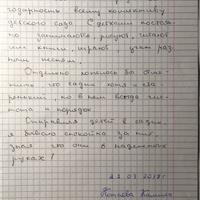 годарность всему коллективу
детского сада. С детками постоян-
но занимаются, рисуют, читают
им книги, играют, учат раз
ными песням.
Отдельно хотелось бы отме-
тить, что садик хоть и ста-
ренький, но в нем всегда чис-
тота и порядок.
Отправляя детей в садик,
я бываю спокойна за них,
зная что они в надежных
руках!
22.03.2018г